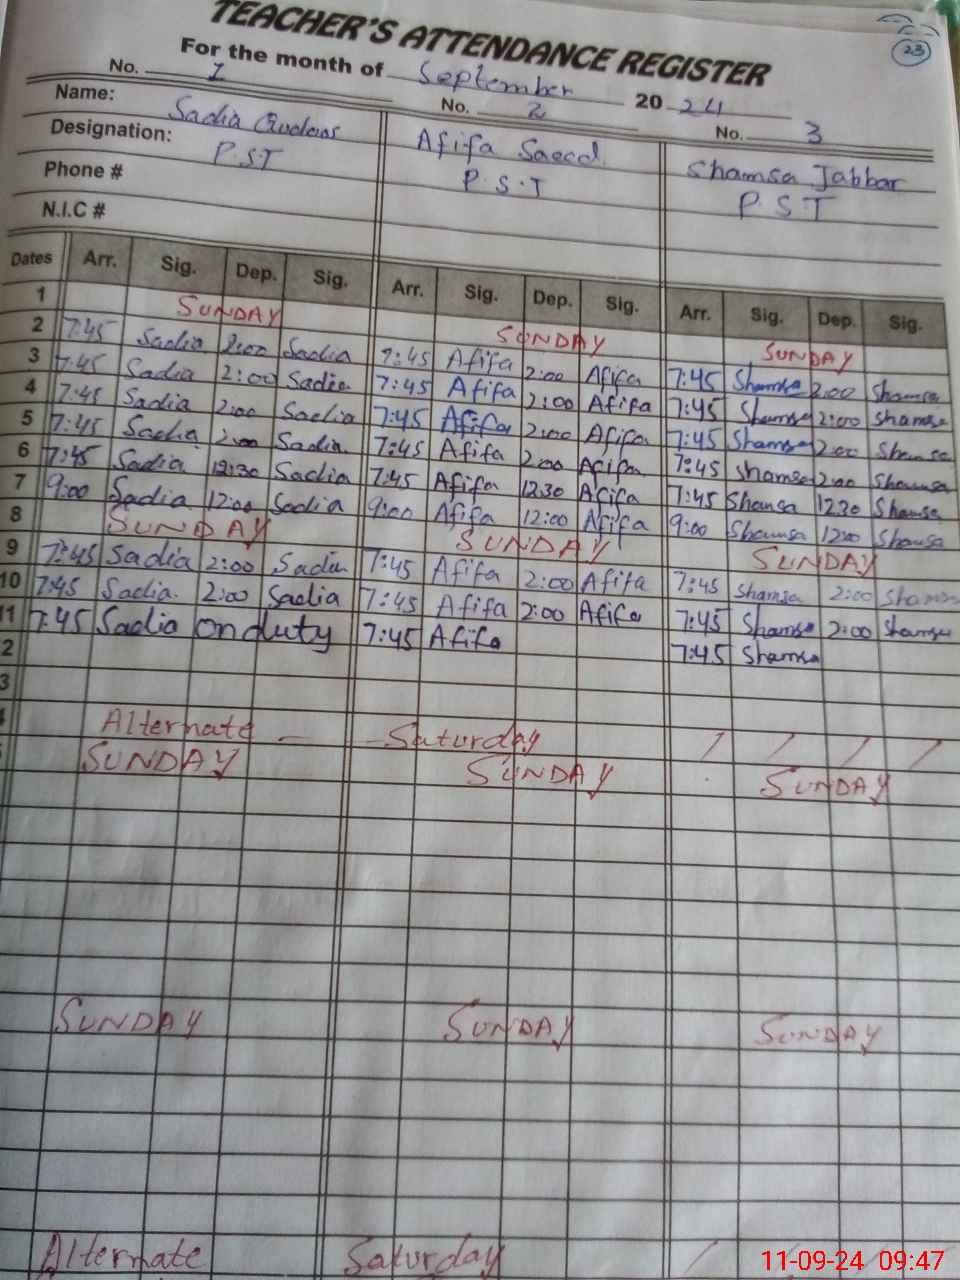 23
TEACHER'S ATTENDANCE REGISTER
For the month of September 2024
No. 1 No. 2 No. 3
Name: Sadia Afifa Saeed Shamsa Jabbar
Designation: P.S.T P.S.T P.S.T
Phone #
N.I.C #
Dates Arr. Sig. Dep. Sig. Arr. Sig. Dep. Sig. Arr. Sig. Dep. Sig.
1 SUNDAY SUNDAY SUNDAY
2 7:45 Sadia 2:00 Sadia 7:45 Afifa 2:00 Afifa 7:45 Shamsa 2:00 Shamsa
3 7:45 Sadia 2:00 Sadia 7:45 Afifa 2:00 Afifa 7:45 Shamsa 2:00 Shamsa
4 7:45 Sadia 2:00 Sadia 7:45 Afifa 2:00 Afifa 7:45 Shamsa 2:00 Shamsa
5 7:45 Sadia 2:00 Sadia 7:45 Afifa 2:00 Afifa 7:45 Shamsa 2:00 Shamsa
6 7:45 Sadia 12:30 Sadia 7:45 Afifa 12:30 Afifa 7:45 Shamsa 12:30 Shamsa
7 9:00 Sadia 12:00 Sadia 9:00 Afifa 12:00 Afifa 9:00 Shamsa 12:00 Shamsa
8 SUNDAY SUNDAY SUNDAY
9 7:45 Sadia 2:00 Sadia 7:45 Afifa 2:00 Afifa 7:45 Shamsa 2:00 Shamsa
10 7:45 Sadia 2:00 Sadia 7:45 Afifa 2:00 Afifa 7:45 Shamsa 2:00 Shamsa
11 7:45 Sadia on duty 7:45 Afifa 7:45 Shamsa
2
3
4 Alternate — - Saturday / / / /
SUNDAY SUNDAY SUNDAY
SUNDAY SUNDAY SUNDAY
Alternate Saturday / / / /
11-09-24 09:47